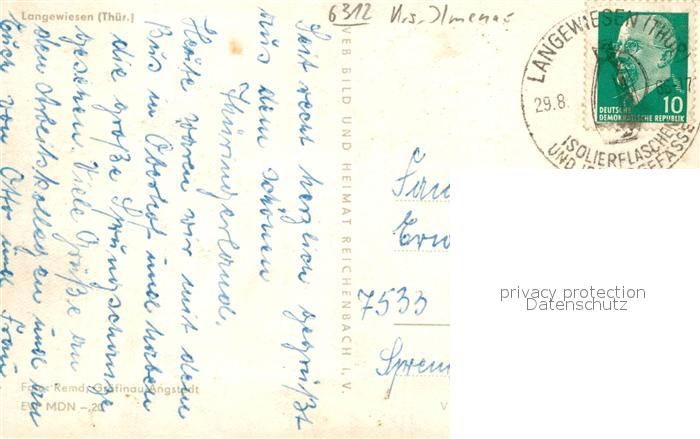 Langewiesen (Thür.)
6312 Krs. Ilmenau
Seid recht herzlich gegrüßt
aus dem schönen
Thüringerland.
Heute waren wir mit dem
Bus in Oberhof und haben
die große Sprungschanze
gesehen. Viele Grüße an
den Arbeitskollegen und
auch von Otto und Frau
Foto: Remd, Gräfinau-Angstedt
EVP MDN -,20
VEB BILD UND HEIMAT REICHENBACH i. V.
LANGEWIESEN (THÜR)
29.8.
ISOLIERFLASCHEN
UND
GEFÄSSE
DEUTSCHE
DEMOKRATISCHE REPUBLIK
10
Fam
7533
Sprem
V
privacy protection
Datenschutz